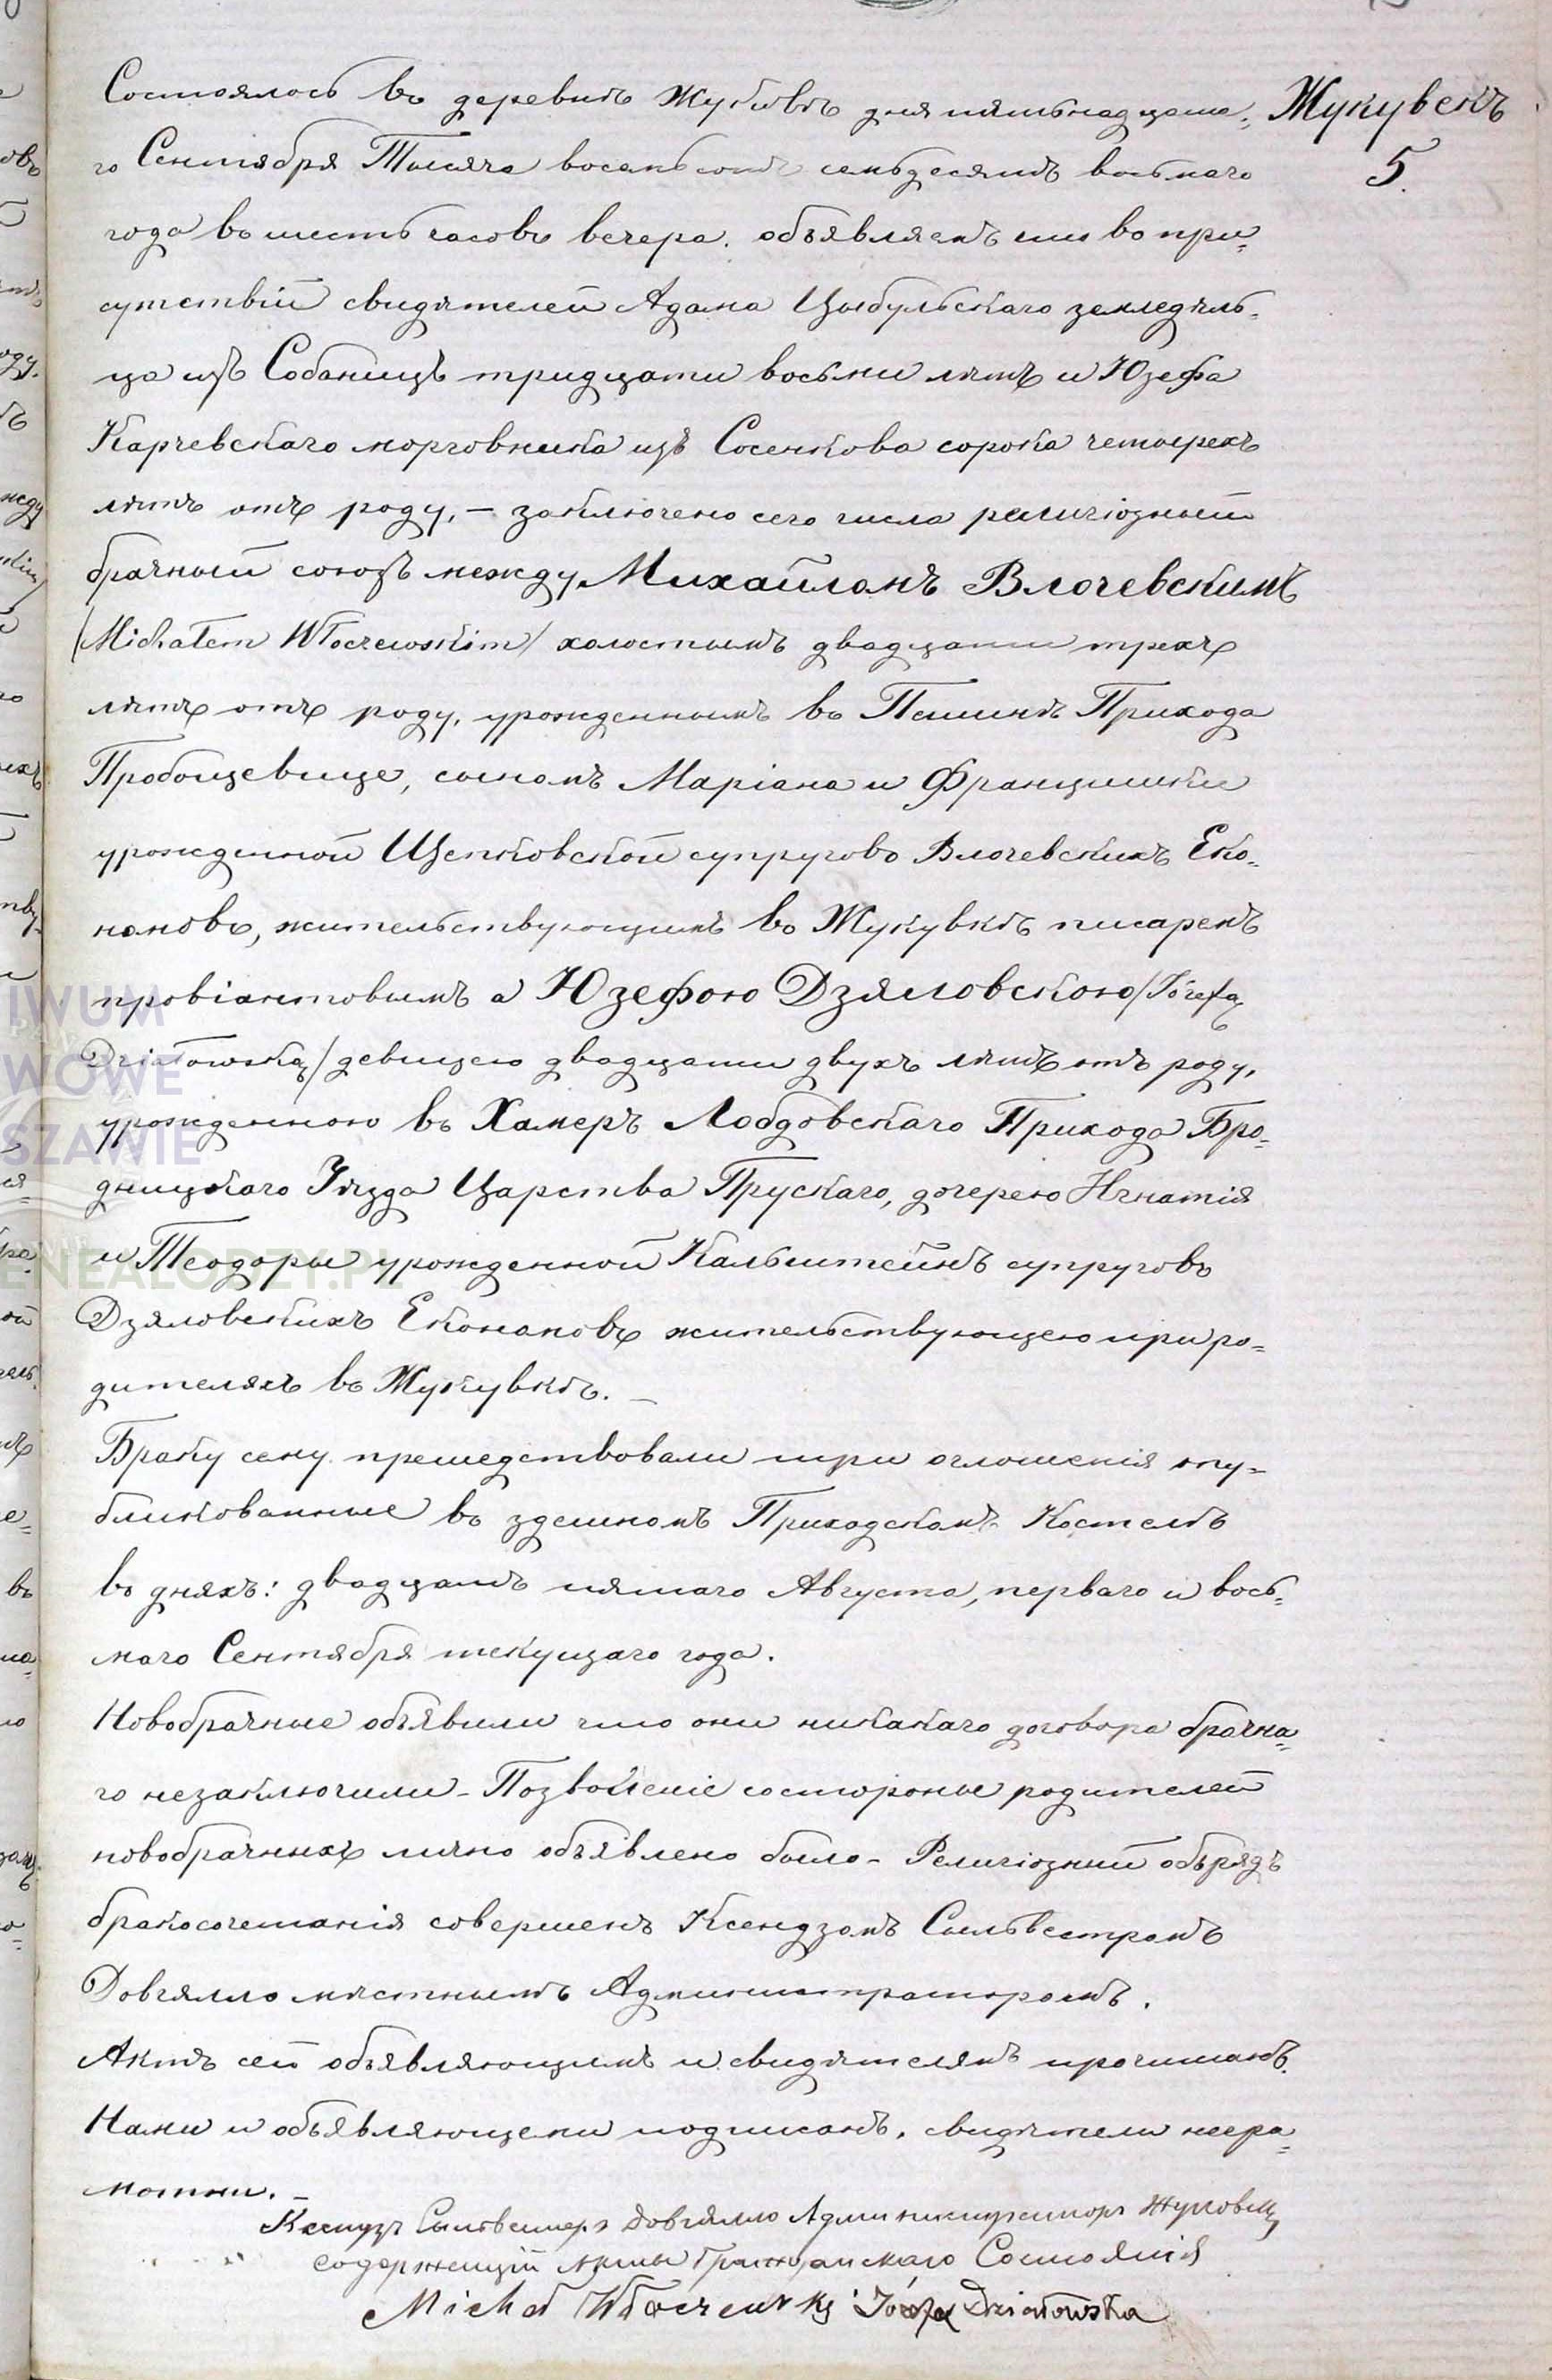 Жукувекъ
5.
Состоялось въ деревнѣ Жуковѣ дня пятьнадцата-
го Сентября Тысяча восемьсотъ семьдесятъ восьмаго
года въ шесть часовъ вечера. объявляемъ что во при=
сутствіи свидѣтелей Адама Цыбульскаго земледѣль-
ца изъ Собаницъ тридцати восьми лѣтъ и Юзефа
Карчевскаго морговника изъ Сосенкова сорока четырехъ
лѣтъ отъ роду, – заключено сего числа религіозный
брачный союзъ между Михаиломъ Влочевскимъ
/Michałem Włoczewskim/ холостымъ двадцати трехъ
лѣтъ отъ роду, урожденнымъ въ Прихода
Пробощевице, сыномъ Маріана и Францишки
урожденной Щепковской супруговъ Влочевскихъ Еко-
номовъ, жительствующимъ въ Жукувкѣ писаремъ
провіантовымъ а Юзефою Дзяловскою /Józefą
Działowską/ девицею двадцати двухъ лѣтъ отъ роду,
урожденною въ Хамеръ Лобдовскаго Прихода Бро-
дницкаго Уѣзда Царства Прускаго, дочерею Игнатія
и Теодоры урожденной Кальштейнъ супруговъ
Дзяловскихъ Економовъ жительствующею при ро=
дителяхъ въ Жукувкѣ. –
Браку сему прешедствовали три оглошенія опу=
бликованные въ здешномъ Приходскомъ Костелѣ
въ дняхъ: двадцать пятаго Августа, перваго и вось-
маго Сентября текущаго года.
Новобрачные объявили что они никакаго договора брачна=
го незаключили – Позволеніе со стороны родителей
новобрачныхъ лично объявлено было – Религіозный обърядъ
бракосочетанія совершенъ Ксендзомъ Сыльвестромъ
Довгялло мѣстнымъ Администраторомъ.
Актъ сей объявляющимъ и свидѣтелямъ прочитанъ.
Нами и объявляющеми подписанъ. свидѣтели негра=
мотни. –
Ксендзъ Сыльвестеръ Довгялло Администраторъ
содержащій Акты Гражданскаго Состоянія
Michał Włoczewski Józefa Działowska
IWUM
WOWE
SZAWIE
ENEALODZY.PL